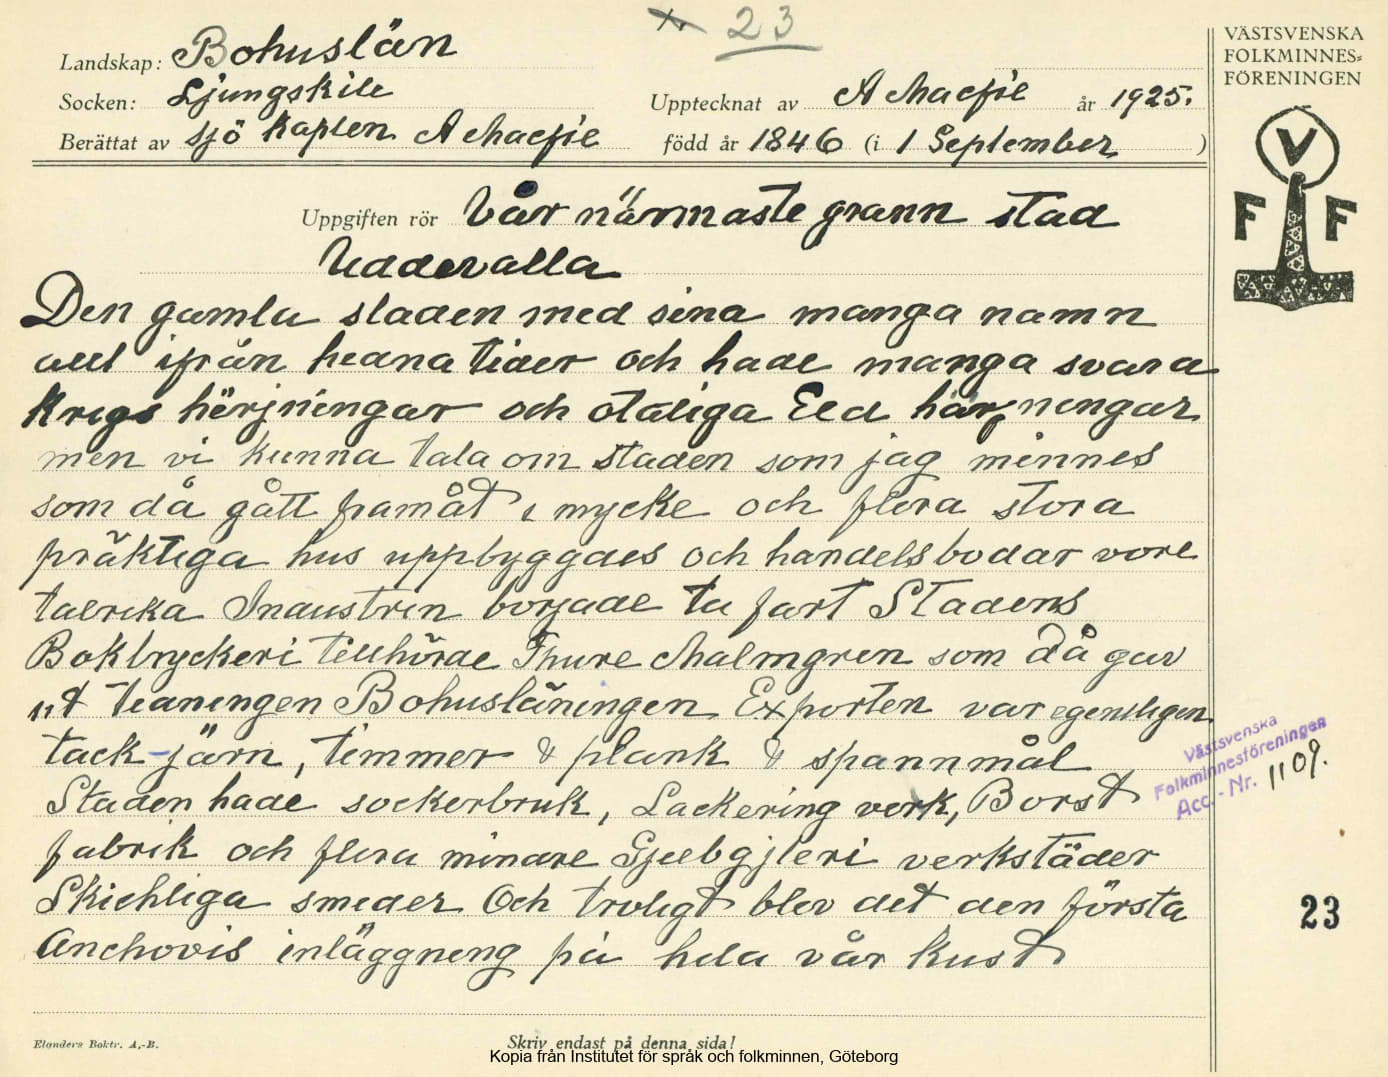 Nr 23
VÄSTSVENSKA
FOLKMINNES=
FÖRENINGEN
Landskap: Bohuslän
Socken: Ljungskile
Upptecknat av A Macfie år 1925.
Berättat av sjö kapten A Macfie född år 1846 (i 1 September )
Uppgiften rör Vår närmaste grann stad
Uddevalla
Den gamla staden med sina manga namn
allt ifrån hedna tider och hade manga svara
Krigs härjningar och otaliga Eld härjningar
men vi kunna tala om staden som jag minnes
som då gått framåt i mycke och flera stora
präktiga hus uppbyggdes och handelsbodar vore
talrika Industrin började ta fart Stadens
Boktryckeri tillhörde Thure Malmgren som då gav
ut tidningen Bohusläningen Exporten var egentligen
tack-järn, timmer & plank & spannmål
Staden hade sockerbruk, Lackering verk, Borst
fabrik och flera mindre Gjelbgjteri verkstäder
Skichliga smeder Och troligt blev det den första
Anchovis inläggning på hela vår kust
V
F F
Västsvenska
Folkminnesföreningen
Acc.-Nr. 1109.
23
Elanders Boktr. A.-B.
Skriv endast på denna sida!
Kopia från Institutet för språk och folkminnen, Göteborg